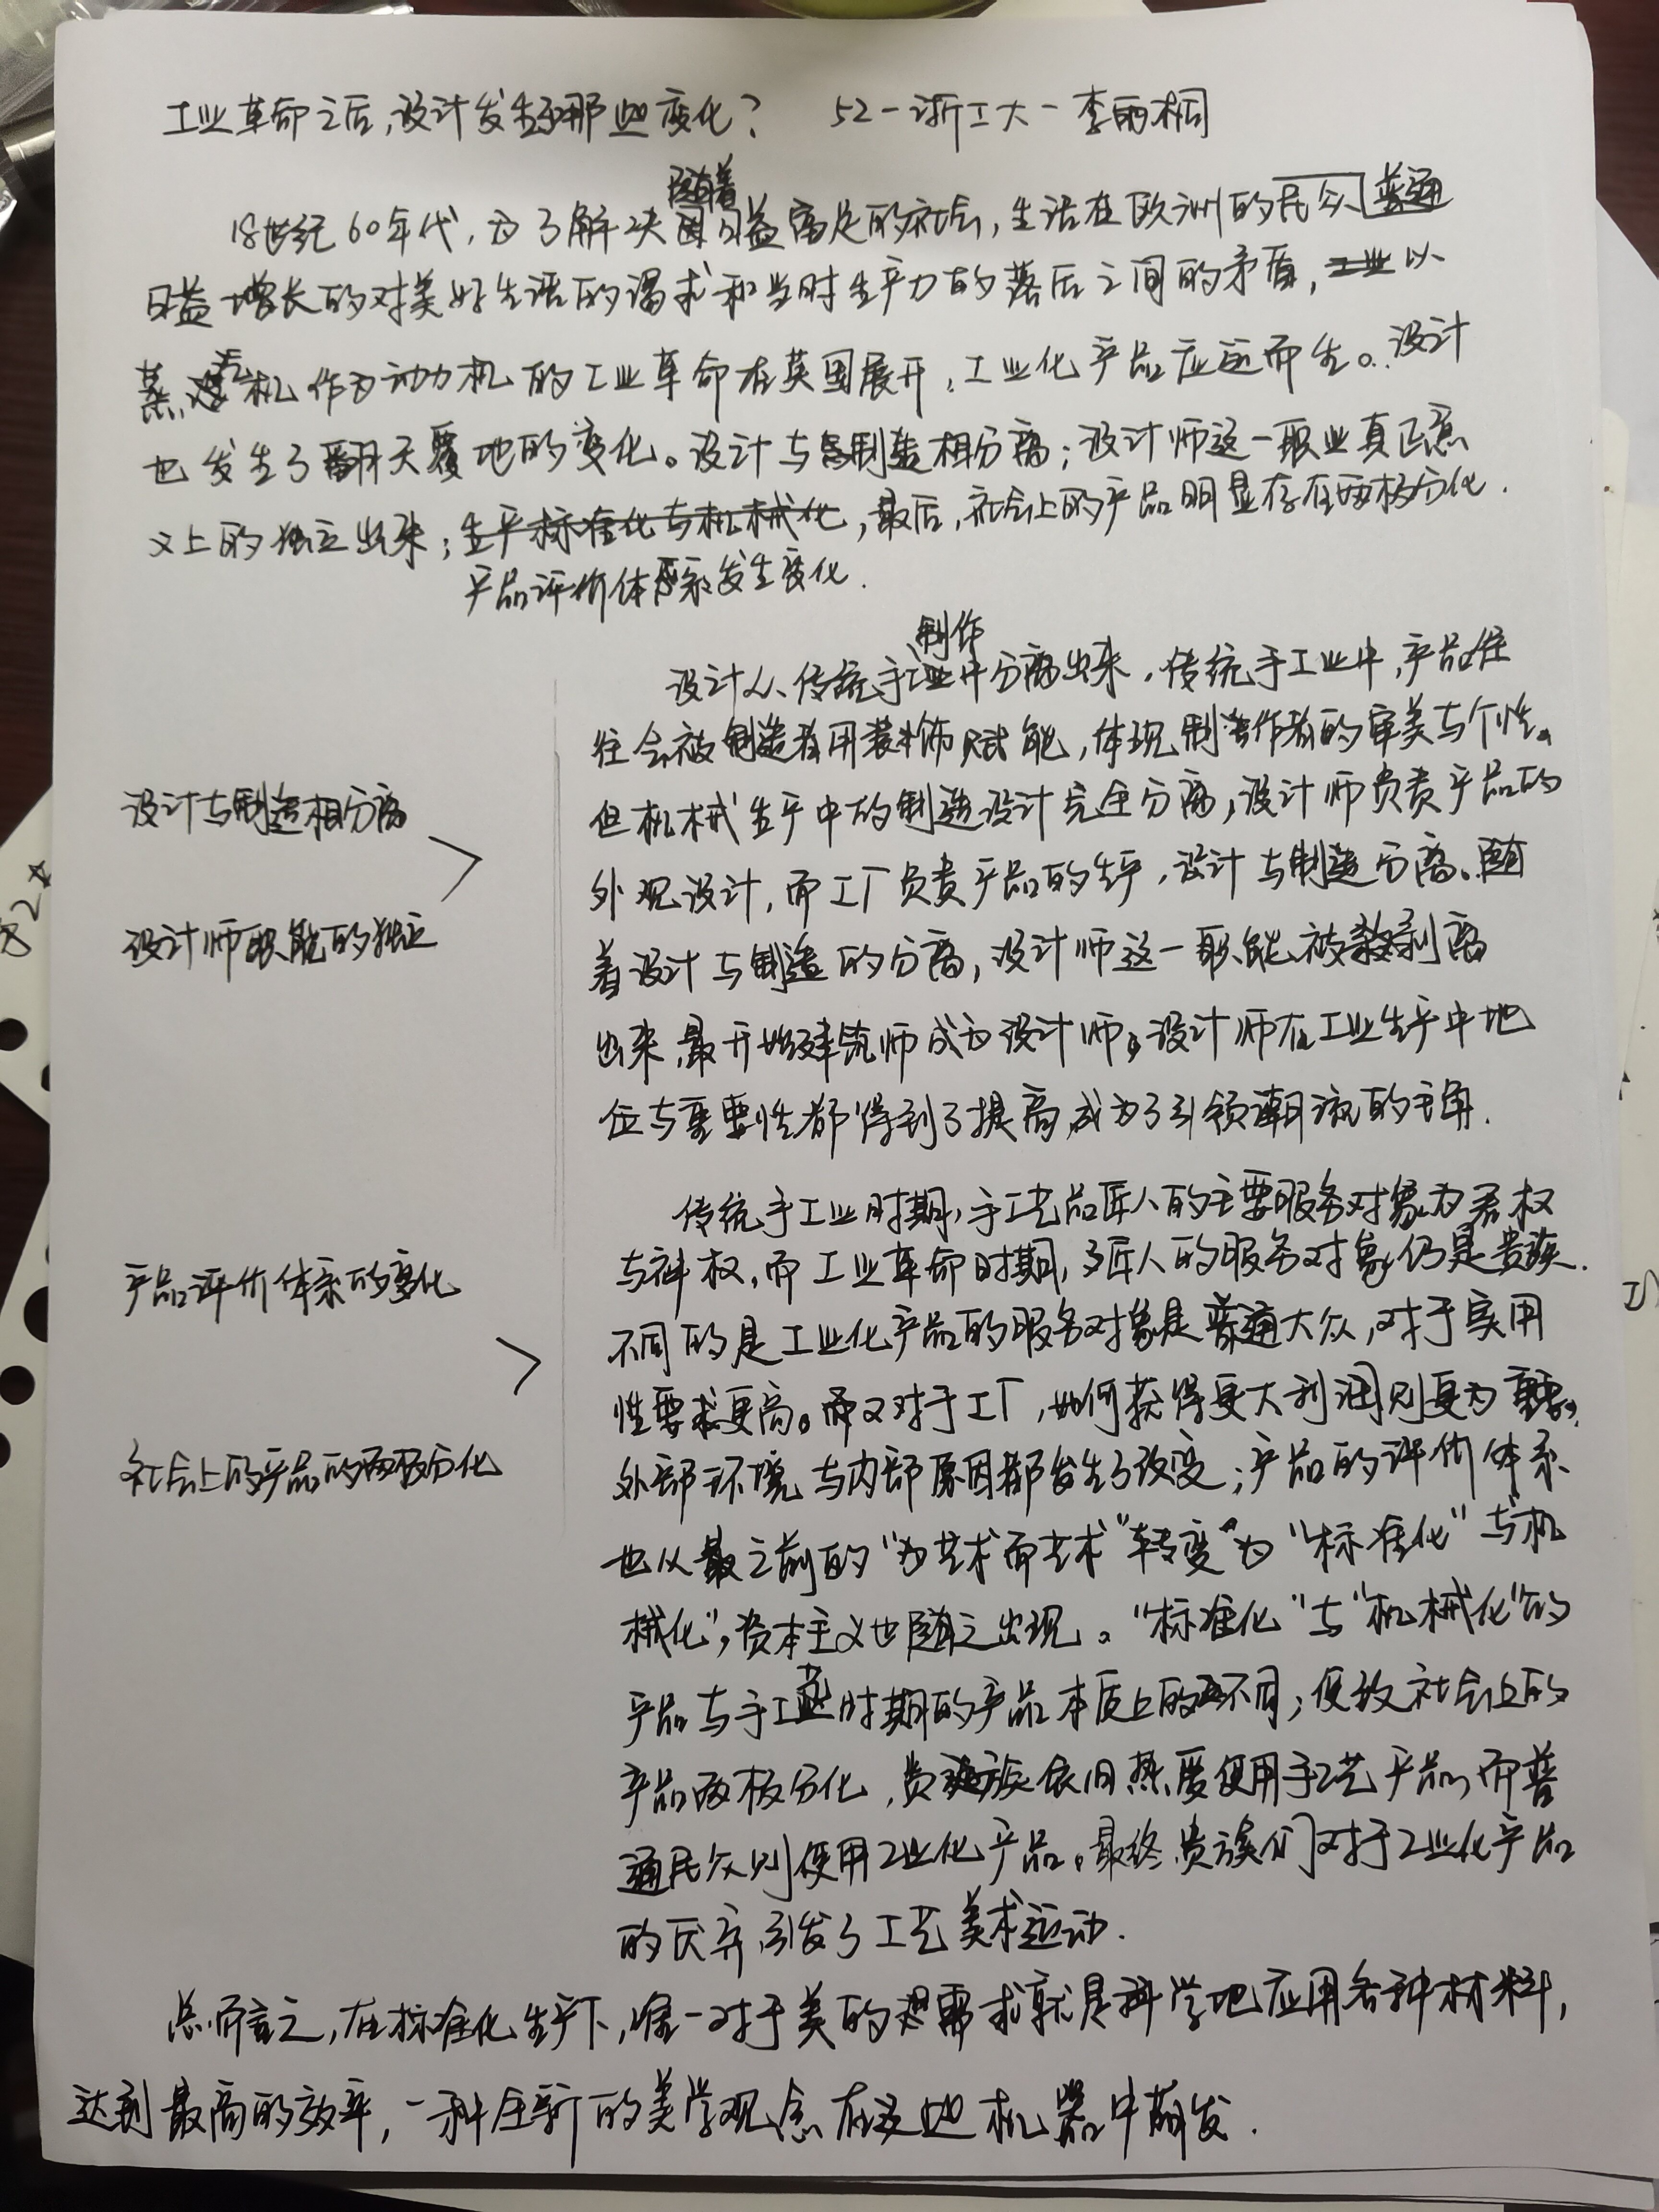 工业革命之后,设计发生了那些变化? 52-浙工大-李雨桐
随着
18世纪60年代,为了解决因日益富足的社会,生活在欧洲的民众 普通
日益增长的对美好生活的渴求和当时生产力的落后之间的矛盾,工业以
蒸汽机作为动力机的工业革命在英国展开,工业化产品应运而生。设计
也发生了翻天覆地的变化。设计与制造相分离;设计师这一职业真正意
义上的独立出来;生产标准化与机械化,最后,社会上的产品明显存在两极分化.
产品评价体系发生变化.
制作
设计从传统手工业中分离出来,传统手工业中,产品往
往会被制造者用装饰赋能,体现制作者的审美与个性。
但机械生产中的制造设计完全分离,设计师负责产品的
外观设计,而工厂负责产品的生产,设计与制造分离。随
设计与制造相分离
着设计与制造的分离,设计师这一职能被剥离
设计师职能的独立
出来,最开始建筑师成为设计师,设计师在工业生产中地
位与重要性都得到了提高,成为了引领潮流的主角.
传统手工业时期,手工艺品匠人的主要服务对象为君权
与神权,而工业革命时期,匠人的服务对象仍是贵族.
产品评价体系的变化
不同的是工业化产品的服务对象是普通大众,对于实用
性要求更高。而又对于工厂,如何获得更大利润则更为重要,
社会上的产品的两极分化
外部环境与内部原因都发生了改变;产品的评价体系
也从最之前的“为艺术而艺术”转变为“标准化”与“机
械化”,资本主义也随之出现。“标准化”与“机械化”的
产品与手工艺时期的产品本质上的不同,使致社会上的
产品两极分化,贵族依旧热爱使用手工艺产品,而普
通民众则使用工业化产品。最终,贵族们对于工业化产品
的厌弃,引发了工艺美术运动.
总而言之,在标准化生产下,唯一对于美的需求就是科学地应用各种材料,
达到最高的效率,一种全新的美学观念在这些机器中萌发.